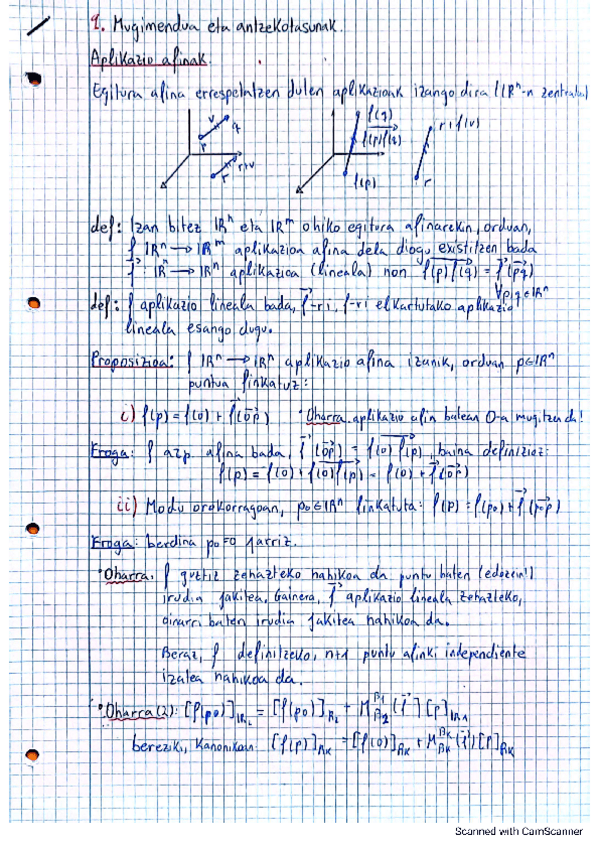 9. Mugimendua eta antzekotasunak.
Aplikazio afinak.
Egitura afina errespetatzen duten aplikazioak izango dira (ℝⁿ-n zentratu)
v q r r+v
f(q) f(p)f(q) f(p) r+f(v) r
def: Izan bitez ℝⁿ eta ℝᵐ ohiko egitura afinarekin, orduan,
f ℝⁿ → ℝᵐ aplikazioa afina dela diogu existitzen bada
f⃗: ℝⁿ → ℝⁿ aplikazioa (lineala) non f(p)f(q) = f⃗(pq)
∀p,q ∈ ℝⁿ
def: f aplikazio lineala bada, f⃗-ri, f-ri elkartutako aplikazio
lineala esango dugu.
Proposizioa: f ℝⁿ → ℝⁿ aplikazio afina izanik, orduan p∈ℝⁿ
puntua finkatuz:
i) f(p) = f(0) + f⃗(0p) · Oharra. aplikazio afin batean 0-a mugitzen da!
Froga: f azp. afina bada, f⃗(0p) = f(0)f(p), baina definizioz:
f(p) = f(0) + f(0)f(p) = f(0) + f⃗(0p)
ii) Modu orokorragoan, p₀∈ℝⁿ finkatuta: f(p) = f(p₀) + f⃗(p₀p)
Froga: berdina p₀=0 jarriz.
· Oharra. f guztiz zehazteko nahikoa da puntu baten (edozein!)
irudia jakitea. Gainera, f⃗ aplikazio lineala zehazteko,
oinarri baten irudia jakitea nahikoa da.
Beraz, f definitzeko, n+1 puntu afinki independiente
izatea nahikoa da.
· Oharra(2): [f(p₀)]ℝ₂ = [f(p₀)]ℝ₂ + M (f⃗) [p]ℝ₁
bereziki, Kanonikoan: [f(p)]ʀᴋ = [f(0)]ʀᴋ + M (f⃗)[p]ʀᴋ
Scanned with CamScanner